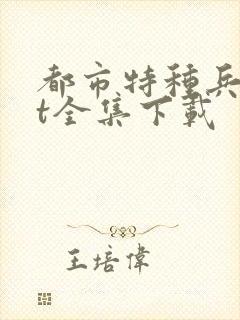 都市特種兵
t全集下載
王培偉